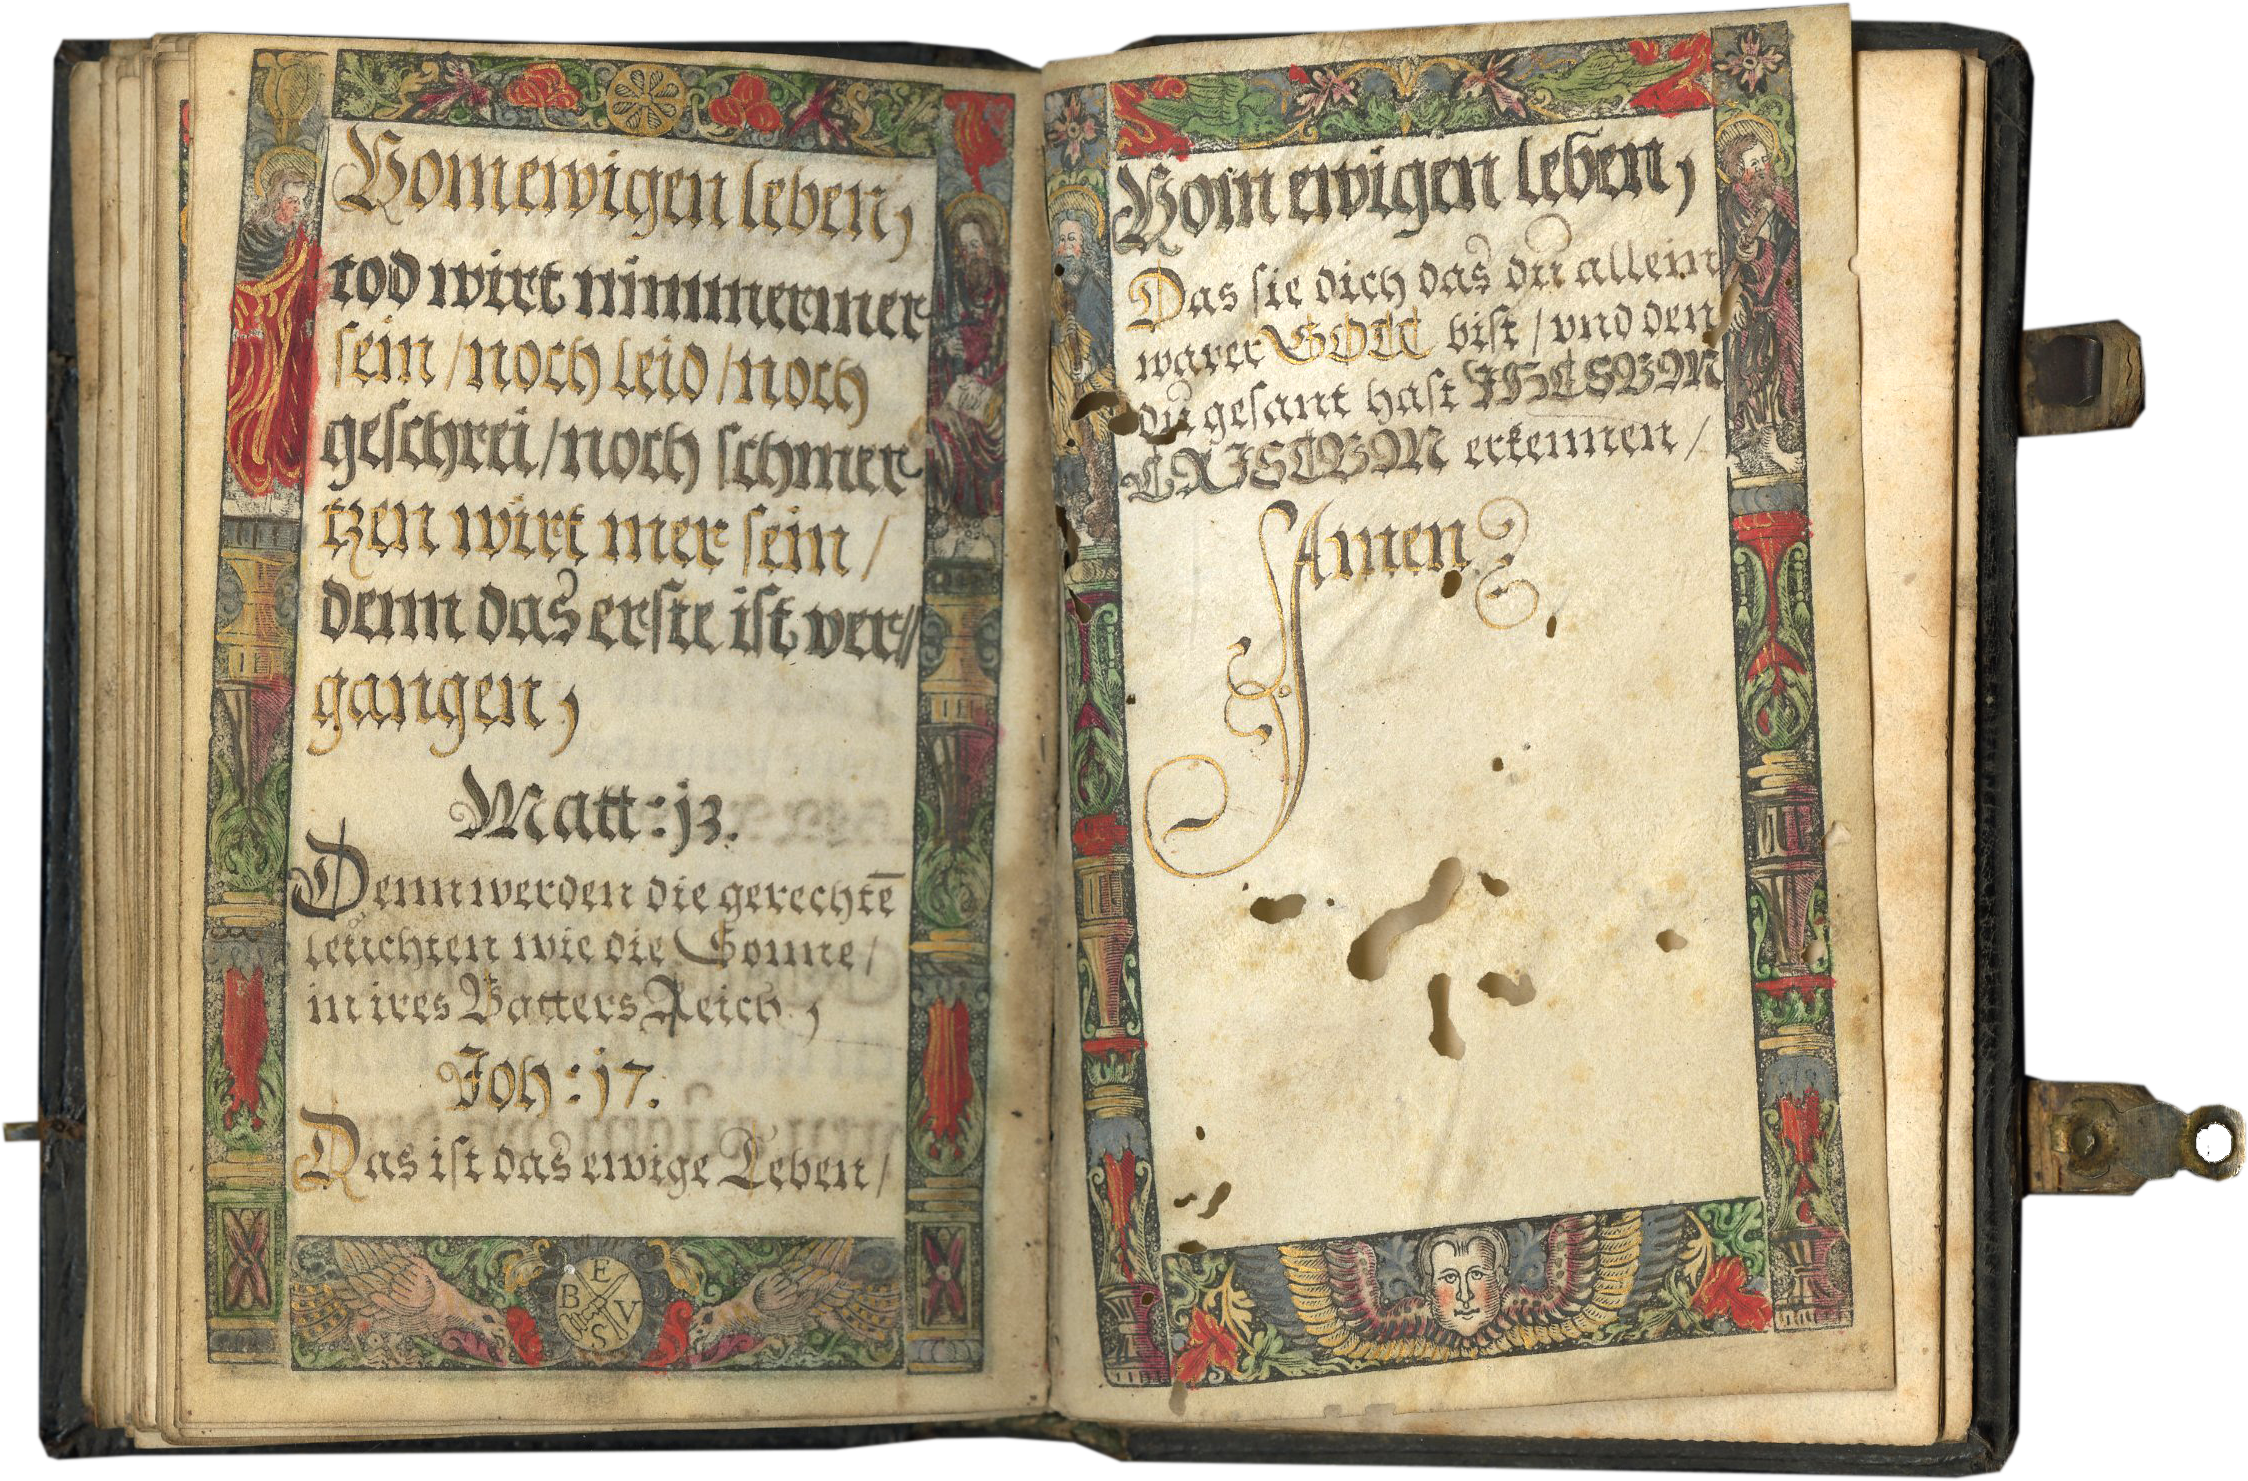 Vom ewigen leben,
tod wirt nimmermer
sein / noch leid / noch
geschrei / noch schmer
tzen wirt mer sein /
denn das erste ist ver//
gangen,
Matt: j3.
Denn werden die gerechtē
leuchten wie die Sonne /
in ires Vatters Reich,
Joh: j7.
Das ist das ewige Leben /
B E V S
Vom ewigen leben,
Das sie dich das du allein
warer GOTT bist / vnd den
du gesant hast JHESVM
CRJSTVM erkennen /
Amen